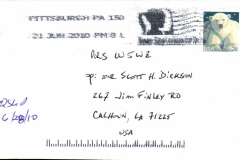 PITTSBURGH PA 150
21 JUN 2010 PM 8 L
QRS W5WZ
MR SCOTT H. DICKSON
267 JIM FINLEY RD
CALHOUN, LA 71225
USA